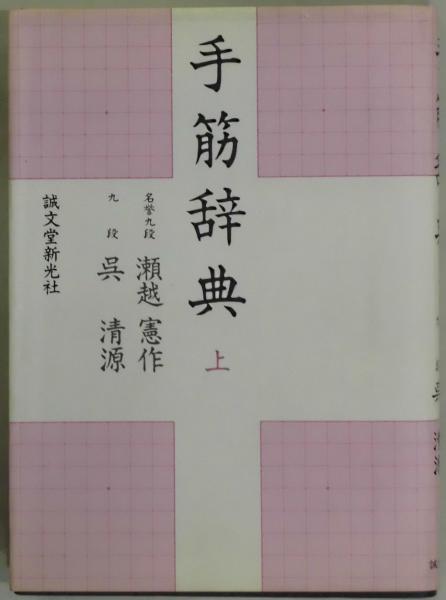 手筋辞典
上
名誉九段 瀬越 憲作
九段 呉 清源
誠文堂新光社